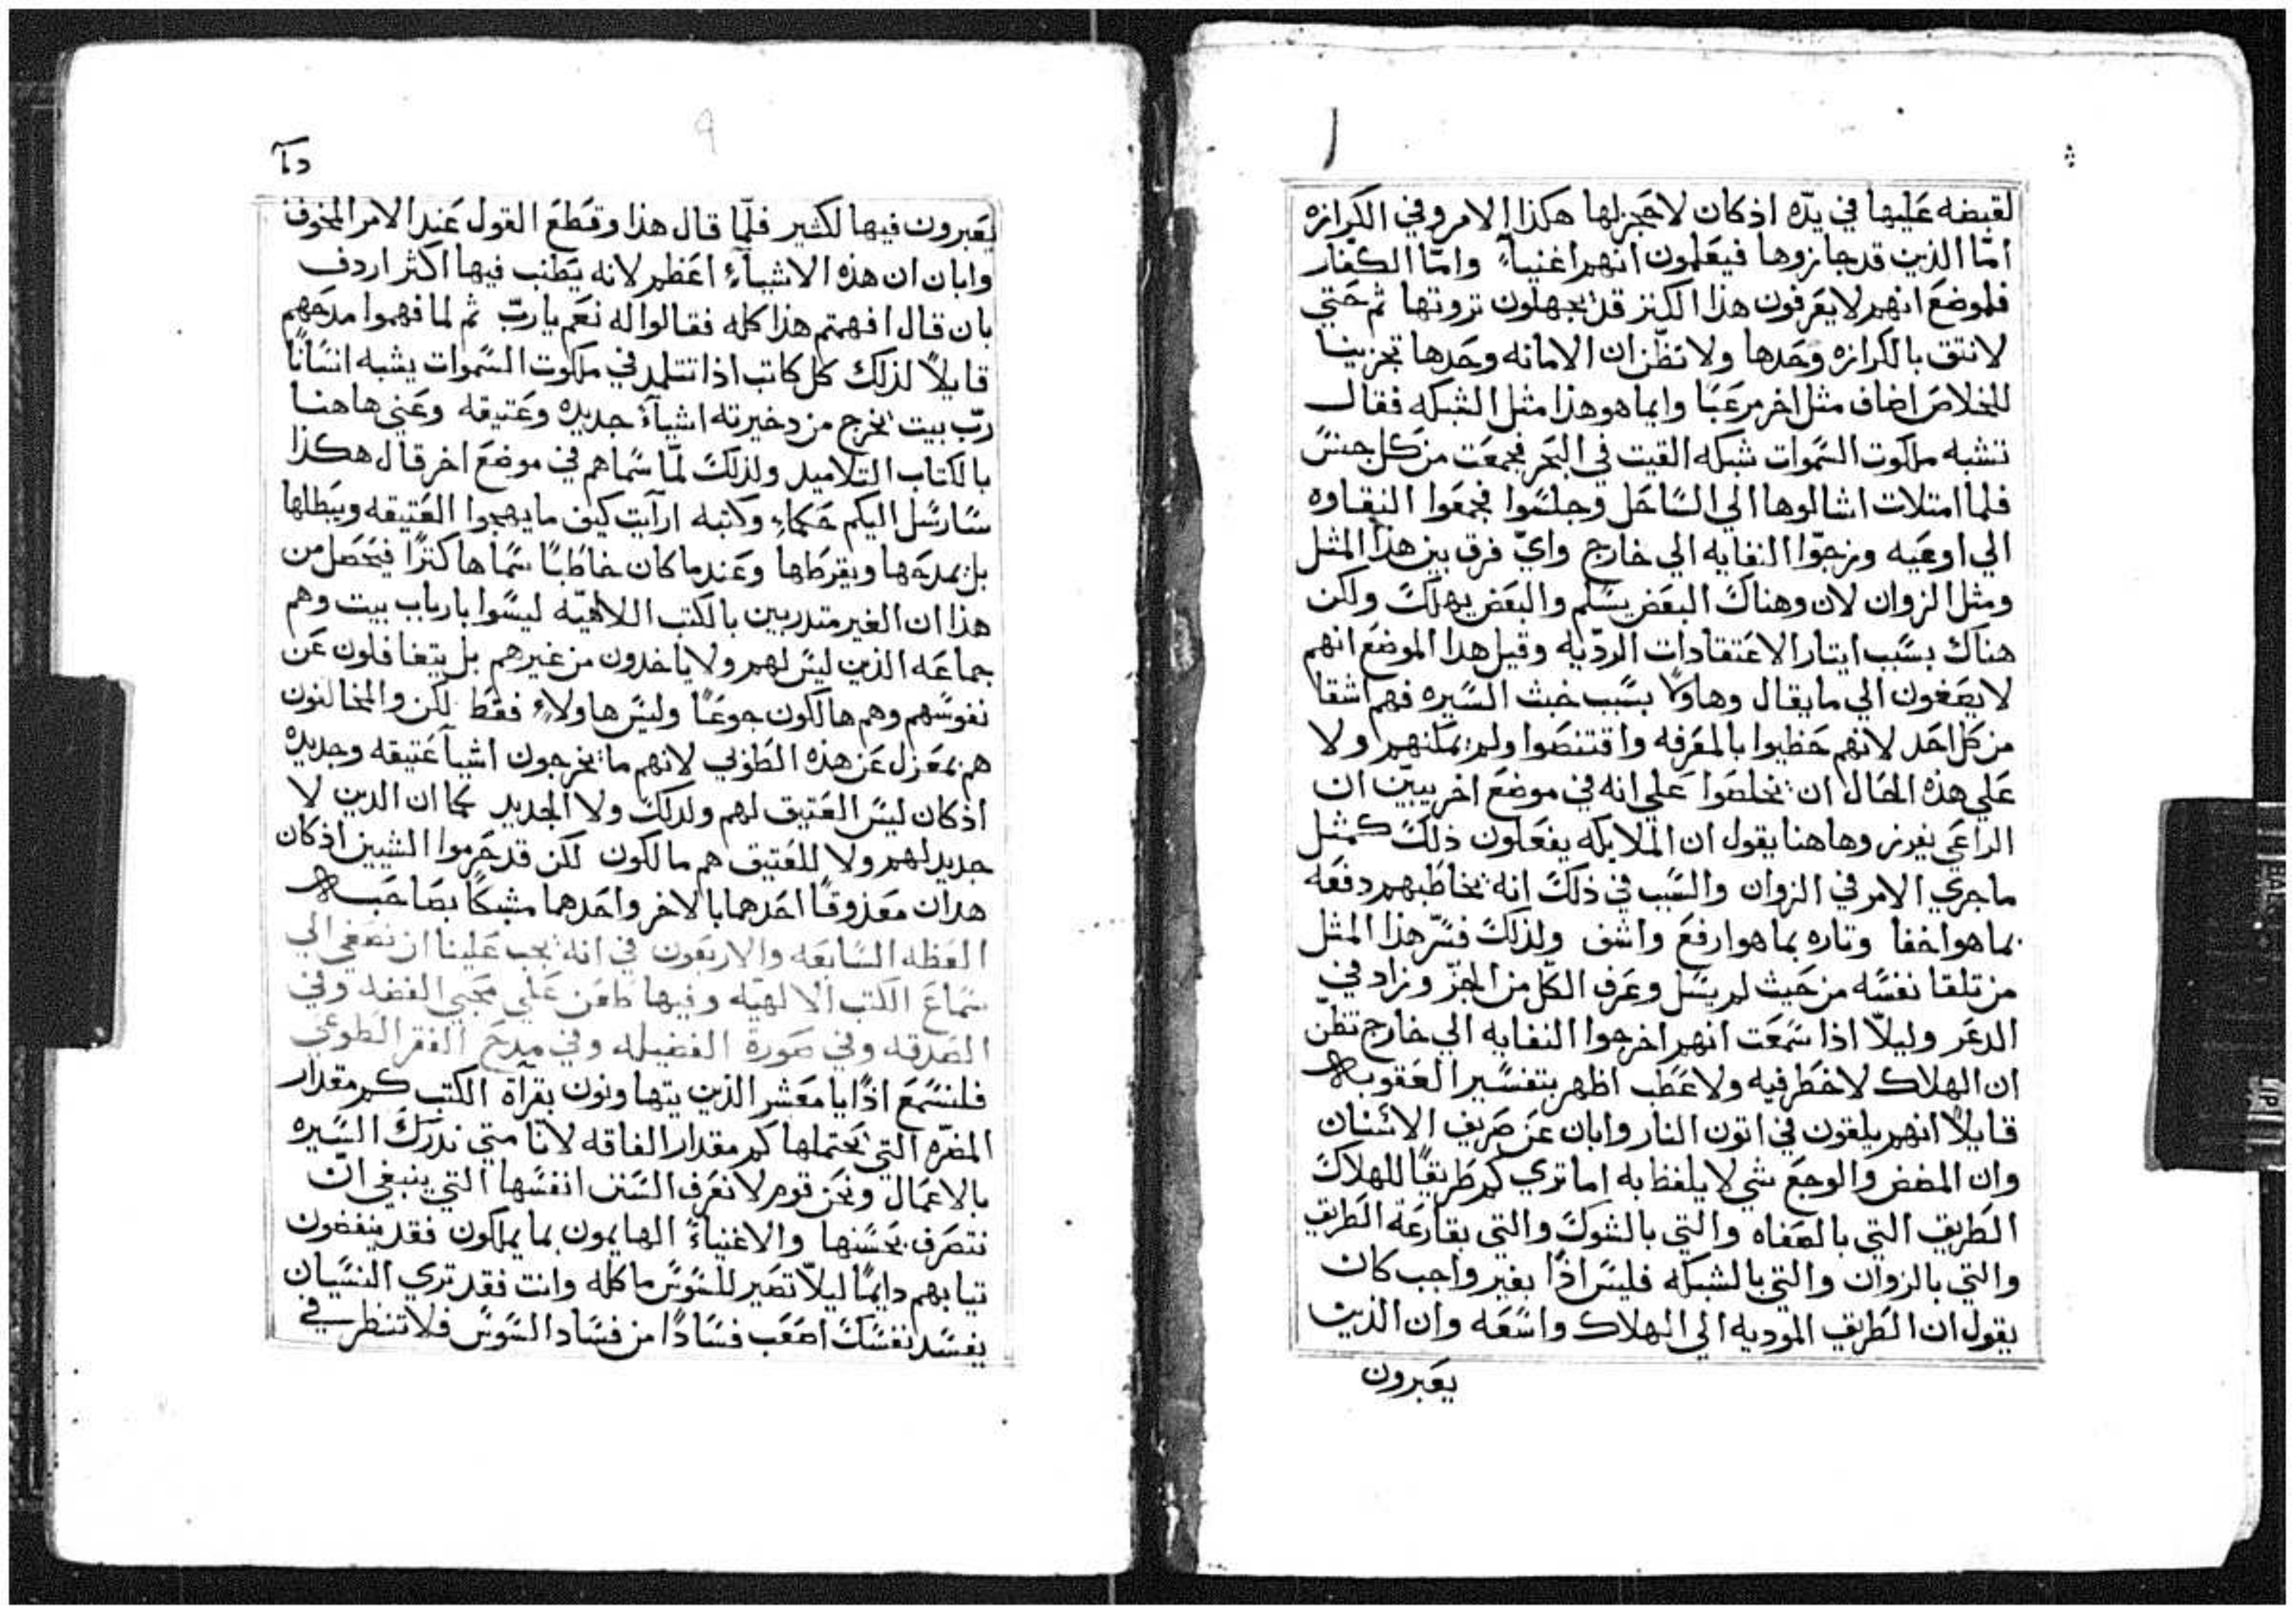 لقبضه عليها في يدّه اذ كان لاحجز لها هكذا الامر وفي الكرازه
امّا الذين قد حازوها فيعلمون انهم اغنياءً وامّا الكفار
فلموضع انهم لا يعرفون هذا الكنز قد يجهلون ثروتها ثم حتي
لا نتق بالكرازه وحدها ولا نظّن ان الامانه وحدها تجزينا
للخلاص اضاف مثل اخر مرعبًا وايما هو هذا مثل الشبكه فقال
تشبه ملكوت السموات شبكه القيت في البحر فجمعت من كل جنسٍ
فلما امتلات اشالوها الي الساحل وجلسوا فجمعوا النقاوه
الي اوعيه وزجوّا النفايه الي خارج وايّ فرق بين هذا المثل
ومثل الزوان لان وهناك البعض يسلم والبعض يهلك ولكن
هناك بسبب ايتار الاعتقادات الرديّه وقيل هدا الموضع انهم
لا يصغون الي ما يقال وهاولا بسبب خبث السيره فهم اشقا
من كل احد لانهم حظيوا بالمعرفه واقتنصوا ولم يمكنهم ولا
علي هذه الحال ان يخلصوا علي انه في موضع اخر يبيّن ان
الراعي يفرز وهاهنا يقول ان الملايكه يفعلون ذلك كمثل
ما جري الامر في الزوان والسبب في ذلك انه يخاطبهم دفعه
بما هو اخفا وتاره بما هو ارفع واشف ولذلك فسّر هذا المثل
من تلقا نفسه من حيث لم يسل وعرف الكل من الجزّ وزاد في
الدعر وليلاّ اذا سمعت انهم اخرجوا النفايه الي خارج تظّن
ان الهلاك لا خطر فيه ولا عطب اظهر بتفسير العقوبه
قايلاً انهم يلقون في اتون النار وابان عن صريف الاسنان
وان المضض والوجع شي لا يلفظ به اما تري كم طريقًا للهلاك
الطريق التي بالصفاه والتي بالشوك والتي بقارعة الطريق
والتي بالزوان والتي بالشبكه فليس اذًا بغير واجب كان
يقول ان الطريق الموديه الي الهلاك واسعه وان الذين
يعبرون
يعبرون فيها لكثير فلمّا قال هذا وقطع القول عند الامر المخوف
وابان ان هذه الاشياءِ اعظم لانه يطنب فيها اكثر اردف
بان قال افهمتم هذا كله فقالوا له نعم يا ربّ ثم لما فهموا مدحهم
قايلاً لذلك كل كاتب اذا تتلمد في ملكوت السموات يشبه انسانًا
ربّ بيت يخرج من دخيرته اشياءً جديده وعتيقه وعني هاهنا
بالكتاب التلاميد ولذلك لمّا سماهم في موضع اخر قال هكذا
سارسل اليكم حكماءِ وكاتبه ارأيت كيف ما يهجوا العتيقه ويبطلها
بل يمدحها ويقرطها وعندما كان خاطبًا سماها كنزًا فيحصل من
هذا ان الغير متدربين بالكتب اللاهيّه ليسوا بارباب بيت وهم
جماعه الذين ليس لهم ولا ياخدون من غيرهم بل يتغافلون عن
نفوسهم وهم هالكون جوعًا وليس هاولاءِ فقط لكن والمخالفون
هم بمعزل عن هذه الطوبي لانهم ما يخرجون اشيا عتيقه وجديده
اذ كان ليس العتيق لهم ولدلك ولا الجديد كما ان الدين لا
جديد لهم ولا للعتيق هم مالكون لكن قد حرموا الشيين اذ كان
هدان معذوقًا احدهما بالاخر واحدهما مشبكًا بصاحبه
العظه السابعه والاربعون في انه يجب علينا ان نصغي الي
سماع الكتب الالهيّه وفيها طعن علي محبي الفضه وفي
الصدقه وفي صورة الفضيله وفي مدح الفقر الطوعي
فلنسمع اذًا يا معشر الذين يتهاونون بقرآة الكتب كم مقدار
المضرّه التي نحتملها كم مقدار الفاقه لانّا متي ندرك السيره
بالاعمال ونحن قوم لا نعرف السنن انفسها التي ينبغي ان
نتصرف بحسنها والاغنياءً الهايمون بما يملكون فقد ينفضون
تيابهم دايمًا ليلاّ تصير للسوس ماكله وانت فقد تري النسيان
يفسد نفسك اصعب فسادًا من فساد السوس فلا تنظر في